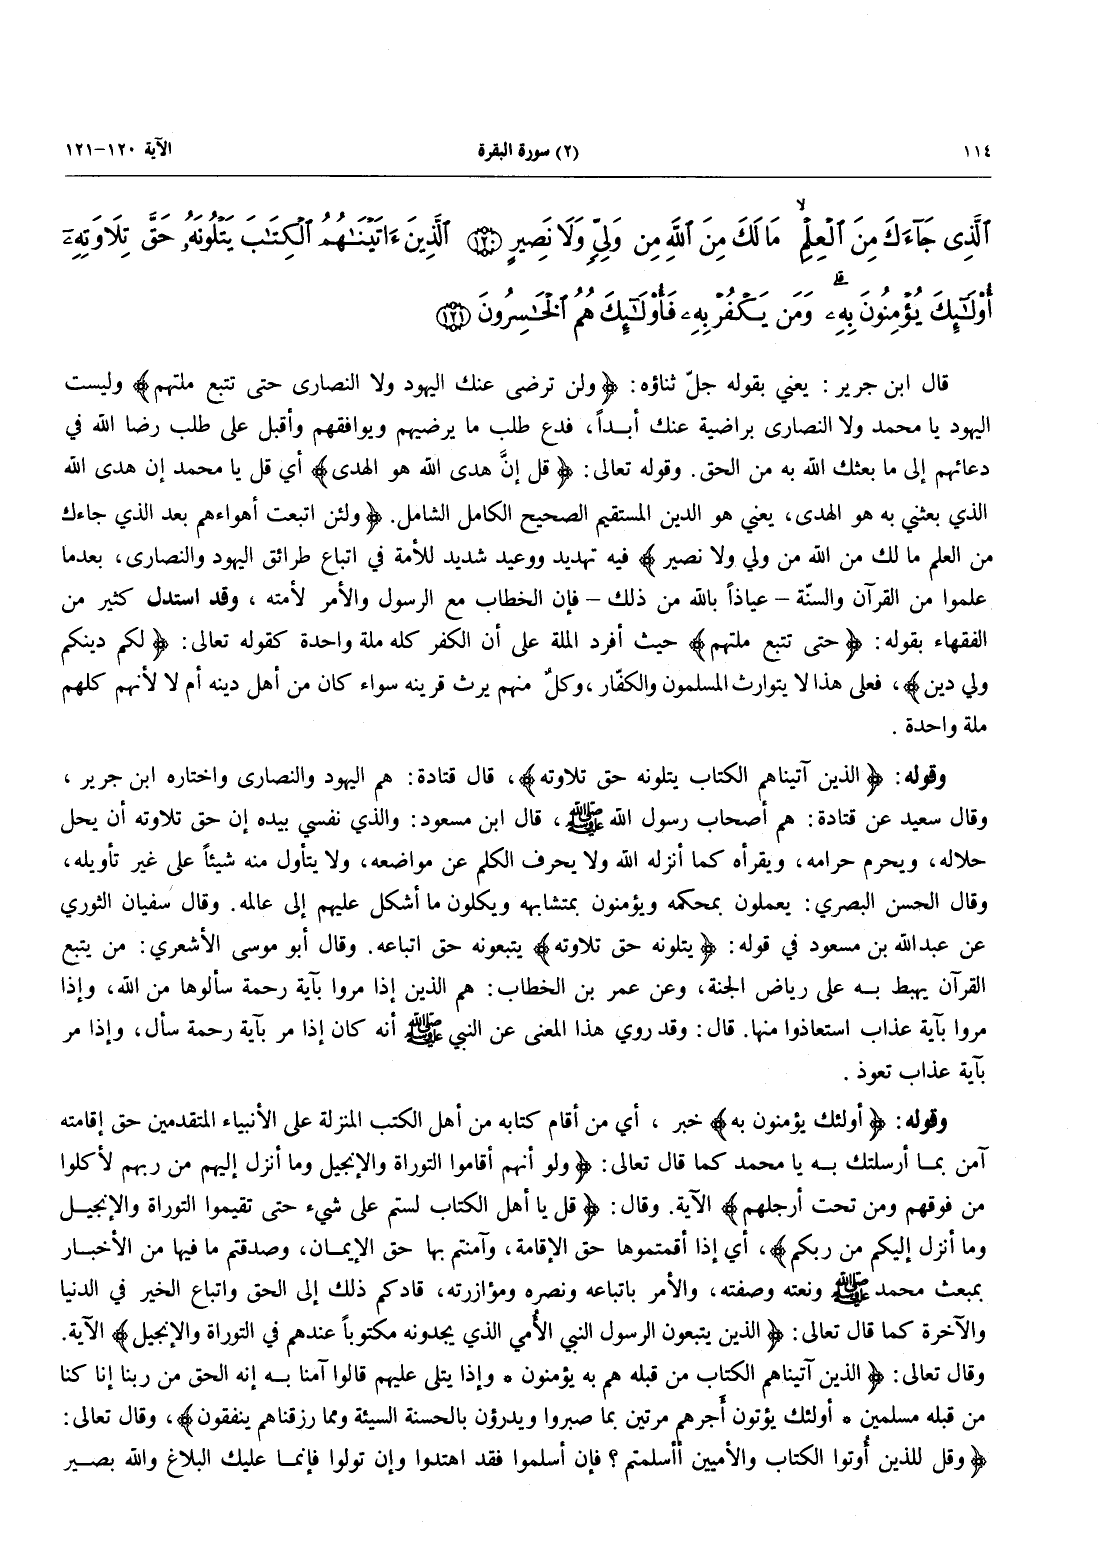 ١١٤ (٢) سورة البقرة الآية ١٢٠-١٢١
ٱلَّذِى جَآءَكَ مِنَ ٱلْعِلْمِ ۙ مَا لَكَ مِنَ ٱللَّهِ مِن وَلِىٍّ وَلَا نَصِيرٍ ﴿١٢٠﴾ ٱلَّذِينَ ءَاتَيْنَٰهُمُ ٱلْكِتَٰبَ يَتْلُونَهُۥ حَقَّ تِلَاوَتِهِۦٓ
أُو۟لَٰٓئِكَ يُؤْمِنُونَ بِهِۦ ۗ وَمَن يَكْفُرْ بِهِۦ فَأُو۟لَٰٓئِكَ هُمُ ٱلْخَٰسِرُونَ ﴿١٢١﴾
قال ابن جرير : يعني بقوله جلّ ثناؤه: ﴿ولن ترضى عنك اليهود ولا النصارى حتى تتبع ملتهم﴾ وليست
اليهود يا محمد ولا النصارى براضية عنك أبـداً، فدع طلب ما يرضيهم ويوافقهم وأقبل على طلب رضا الله في
دعائهم إلى ما بعثك الله به من الحق. وقوله تعالى: ﴿قل إنَّ هدى الله هو الهدى﴾ أي قل يا محمد إن هدى الله
الذي بعثني به هو الهدى، يعني هو الدين المستقيم الصحيح الكامل الشامل. ﴿ولئن اتبعت أهواءهم بعد الذي جاءك
من العلم ما لك من الله من ولي ولا نصير﴾ فيه تهديد ووعيد شديد للأمة في اتباع طرائق اليهود والنصارى، بعدما
علموا من القرآن والسنّة – عياذاً بالله من ذلك – فإن الخطاب مع الرسول والأمر لأمته ، وقد استدل كثير من
الفقهاء بقوله: ﴿حتى تتبع ملتهم﴾ حيث أفرد الملة على أن الكفر كله ملة واحدة كقوله تعالى: ﴿لكم دينكم
ولي دين﴾، فعلى هذا لا يتوارث المسلمون والكفّار ،وكلٌ منهم يرث قرينه سواء كان من أهل دينه أم لا لأنهم كلهم
ملة واحدة .
وقوله: ﴿الذين آتيناهم الكتاب يتلونه حق تلاوته﴾، قال قتادة: هم اليهود والنصارى واختاره ابن جرير ،
وقال سعيد عن قتادة: هم أصحاب رسول الله ﷺ، قال ابن مسعود: والذي نفسي بيده إن حق تلاوته أن يحل
حلاله، ويحرم حرامه، ويقرأه كما أنزله الله ولا يحرف الكلم عن مواضعه، ولا يتأول منه شيئاً على غير تأويله،
وقال الحسن البصري: يعملون بمحكمه ويؤمنون بمتشابهه ويكلون ما أشكل عليهم إلى عالمه. وقال سفيان الثوري
عن عبدالله بن مسعود في قوله: ﴿يتلونه حق تلاوته﴾ يتبعونه حق اتباعه. وقال أبو موسى الأشعري: من يتبع
القرآن يهبط بـه على رياض الجنة، وعن عمر بن الخطاب: هم الذين إذا مروا بآية رحمة سألوها من الله، وإذا
مروا بآية عذاب استعاذوا منها. قال: وقد روي هذا المعنى عن النبي ﷺ أنه كان إذا مر بآية رحمة سأل، وإذا مر
بآية عذاب تعوذ .
وقوله: ﴿أولئك يؤمنون به﴾ خبر ، أي من أقام كتابه من أهل الكتب المنزلة على الأنبياء المتقدمين حق إقامته
آمن بمـا أرسلتك بـه يا محمد كما قال تعالى: ﴿ولو أنهم أقاموا التوراة والإنجيل وما أنزل إليهم من ربهم لأكلوا
من فوقهم ومن تحت أرجلهم﴾ الآية. وقال: ﴿قل يا أهل الكتاب لستم على شيء حتى تقيموا التوراة والإنجيـل
وما أنزل إليكم من ربكم﴾، أي إذا أقمتموها حق الإقامة، وآمنتم بها حق الإيمـان، وصدقتم ما فيها من الأخبـار
بمبعث محمد ﷺ ونعته وصفته، والأمر باتباعه ونصره ومؤازرته، قادكم ذلك إلى الحق واتباع الخير في الدنيا
والآخرة كما قال تعالى: ﴿الذين يتبعون الرسول النبي الأُمي الذي يجدونه مكتوباً عندهم في التوراة والإنجيل﴾ الآية.
وقال تعالى: ﴿الذين آتيناهم الكتاب من قبله هم به يؤمنون * وإذا يتلى عليهم قالوا آمنا بـه إنه الحق من ربنا إنا كنا
من قبله مسلمين * أولئك يؤتون أجرهم مرتين بما صبروا ويدرؤن بالحسنة السيئة ومما رزقناهم ينفقون﴾، وقال تعالى:
﴿وقل للذين أُوتوا الكتاب والأميين أأسلمتم ؟ فإن أسلموا فقد اهتدوا وإن تولوا فإنمـا عليك البلاغ والله بصـير